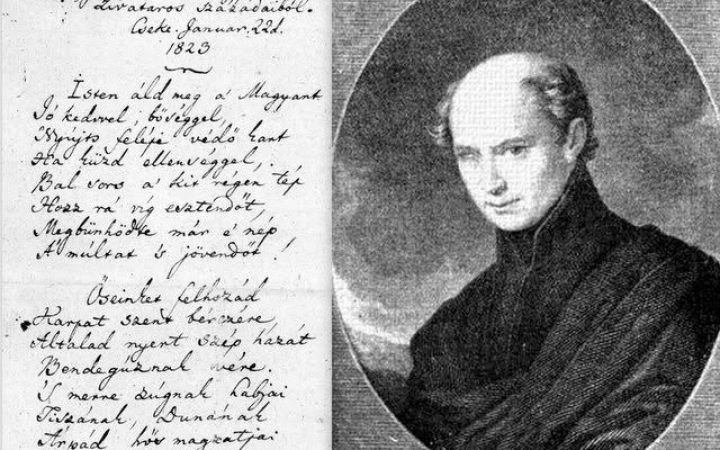 Zivataros századaiból.
Cseke. Januar. 22d.
1823
Isten áld meg a' Magyart
Jó kedvvel, bőséggel,
Nyújts feléje védő kart
Ha küzd ellenséggel,
Bal sors a' kit régen tép
Hozz rá víg esztendőt,
Megbűnhődte már e' nép
A' múltat 's jövendőt!
Őseinket felhozád
Kárpát szent bérczére
Általad nyert szép hazát
Bendegúznak vére.
'S merre zúgnak habjai
Tiszának, Dunának
Árpád hős magzatjai